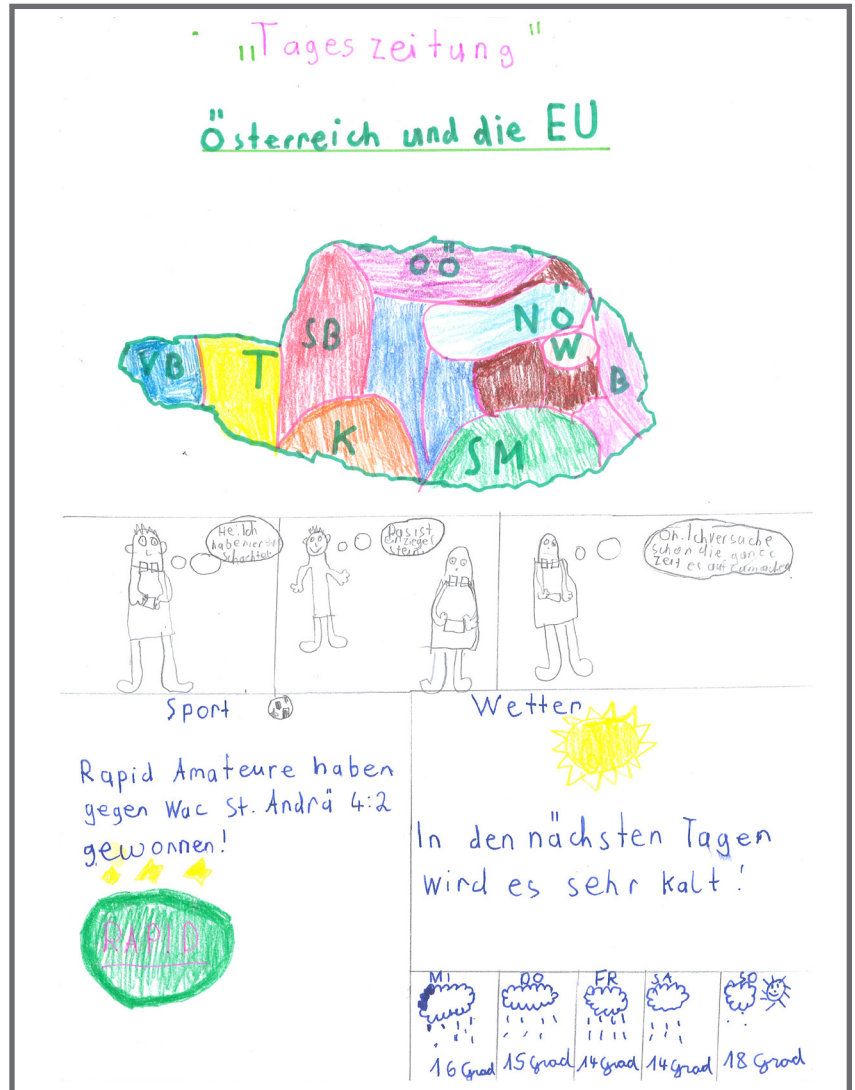 "Tageszeitung"
Österreich und die EU
OÖ
NÖ
SB
W
VB
T
B
K
SM
He. Ich
habe hier
Schachtel
Das ist
ein Ziegel
stein.
Oh. Ich versuche
schon die ganze
Zeit es aufzumachen
Sport
Rapid Amateure haben
gegen Wac St. Andrä 4:2
gewonnen!
RAPID
Wetter
In den nächsten Tagen
wird es sehr kalt!
MI DO FR SA SO
16 Grad 15 Grad 14 Grad 14 Grad 18 Grad